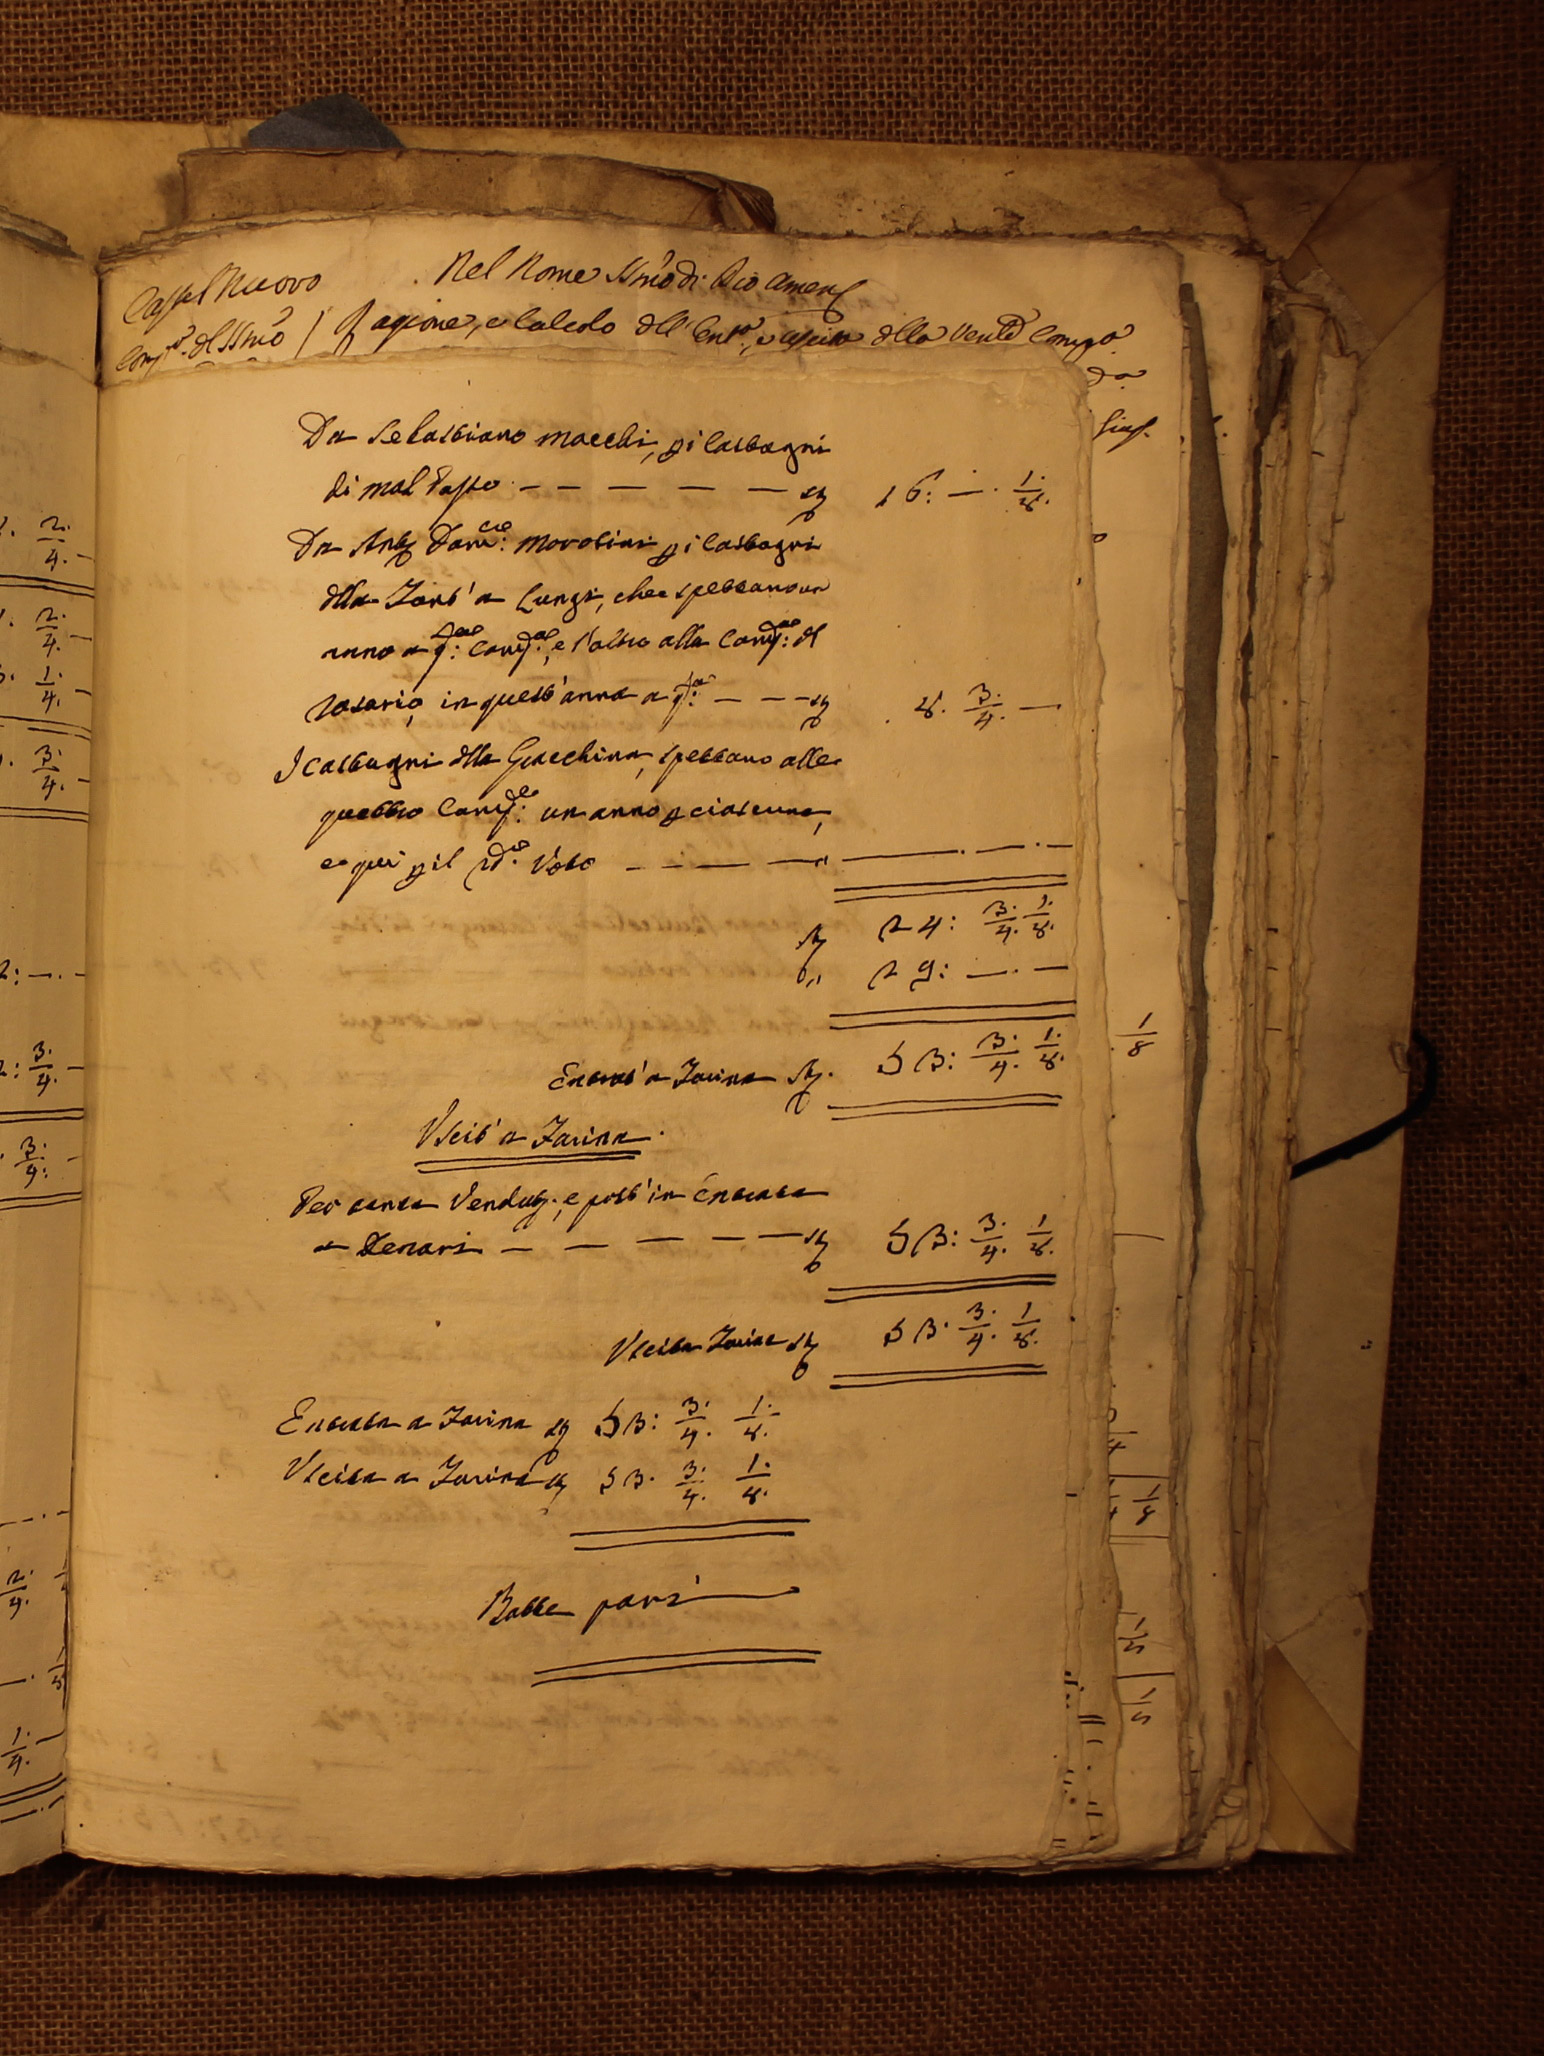 Castel Nuovo
Nel Nome SSmo di Dio Amen
Comp.a del SSmo / Ragione, e Calcolo dell' Ent.a, e uscita della Ven.le Comp.a
da
Da Sebastiano Macchi, p i Castagni
di mal Passo — — — — — st 16: —. 1/8.
Da Ant.o Dom.co: Morotini p i Castagni
della Font'a Lungi, che spettano un
anno a q.: Comp.:, e l'altro alla Comp.: del
Rosario, in quest'anno a q.: — — — st 8. 3/4. —
I Castagni della Giacchina, spettano alle
quattro Comp.: un anno p ciascuna,
e qui p il Voto — — — — — —. —. —
st 24: 3/4. 1/8.
" 29: —. —
Entrat'a Farina st. 53: 3/4. 1/8.
Uscit'a Farina.
Per tanta Vendut., e post'in Entrata
a Denari — — — — — st 53: 3/4. 1/8.
Uscita Farina st 53. 3/4. 1/8.
Entrata a Farina st 53: 3/4. 1/8.
Uscita a Farina st 53. 3/4. 1/8.
Batte pari
1/8